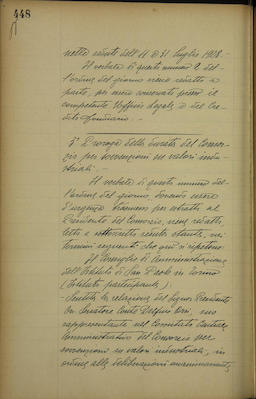 448
nelle sedute dell'11 e 31 luglio 1928. -
Il verbale di questo numero 2 del-
l'ordine del giorno viene redatto a
parte, per essere conservato presso il
competente Ufficio legale e del Cre-
dito fondiario. -
3° Proroga della durata del Consor-
zio per sovvenzioni su valori indu-
striali. -
Il verbale di questo numero del-
l'ordine del giorno, dovendo essere
d'urgenza trasmesso per estratto al
Presidente del Consorzio, viene redatto,
letto e sottoscritto seduta stante, nei
termini seguenti che qui si ripetono:
Il Consiglio di Amministrazione
dell'Istituto di San Paolo in Torino
(Istituto partecipante);
Sentita la relazione del Signor Presidente
On. Senatore Conte Delfino Orsi, suo
rappresentante nel Comitato Centrale
Amministrativo del Consorzio per
sovvenzioni su valori industriali, in
ordine alle deliberazioni